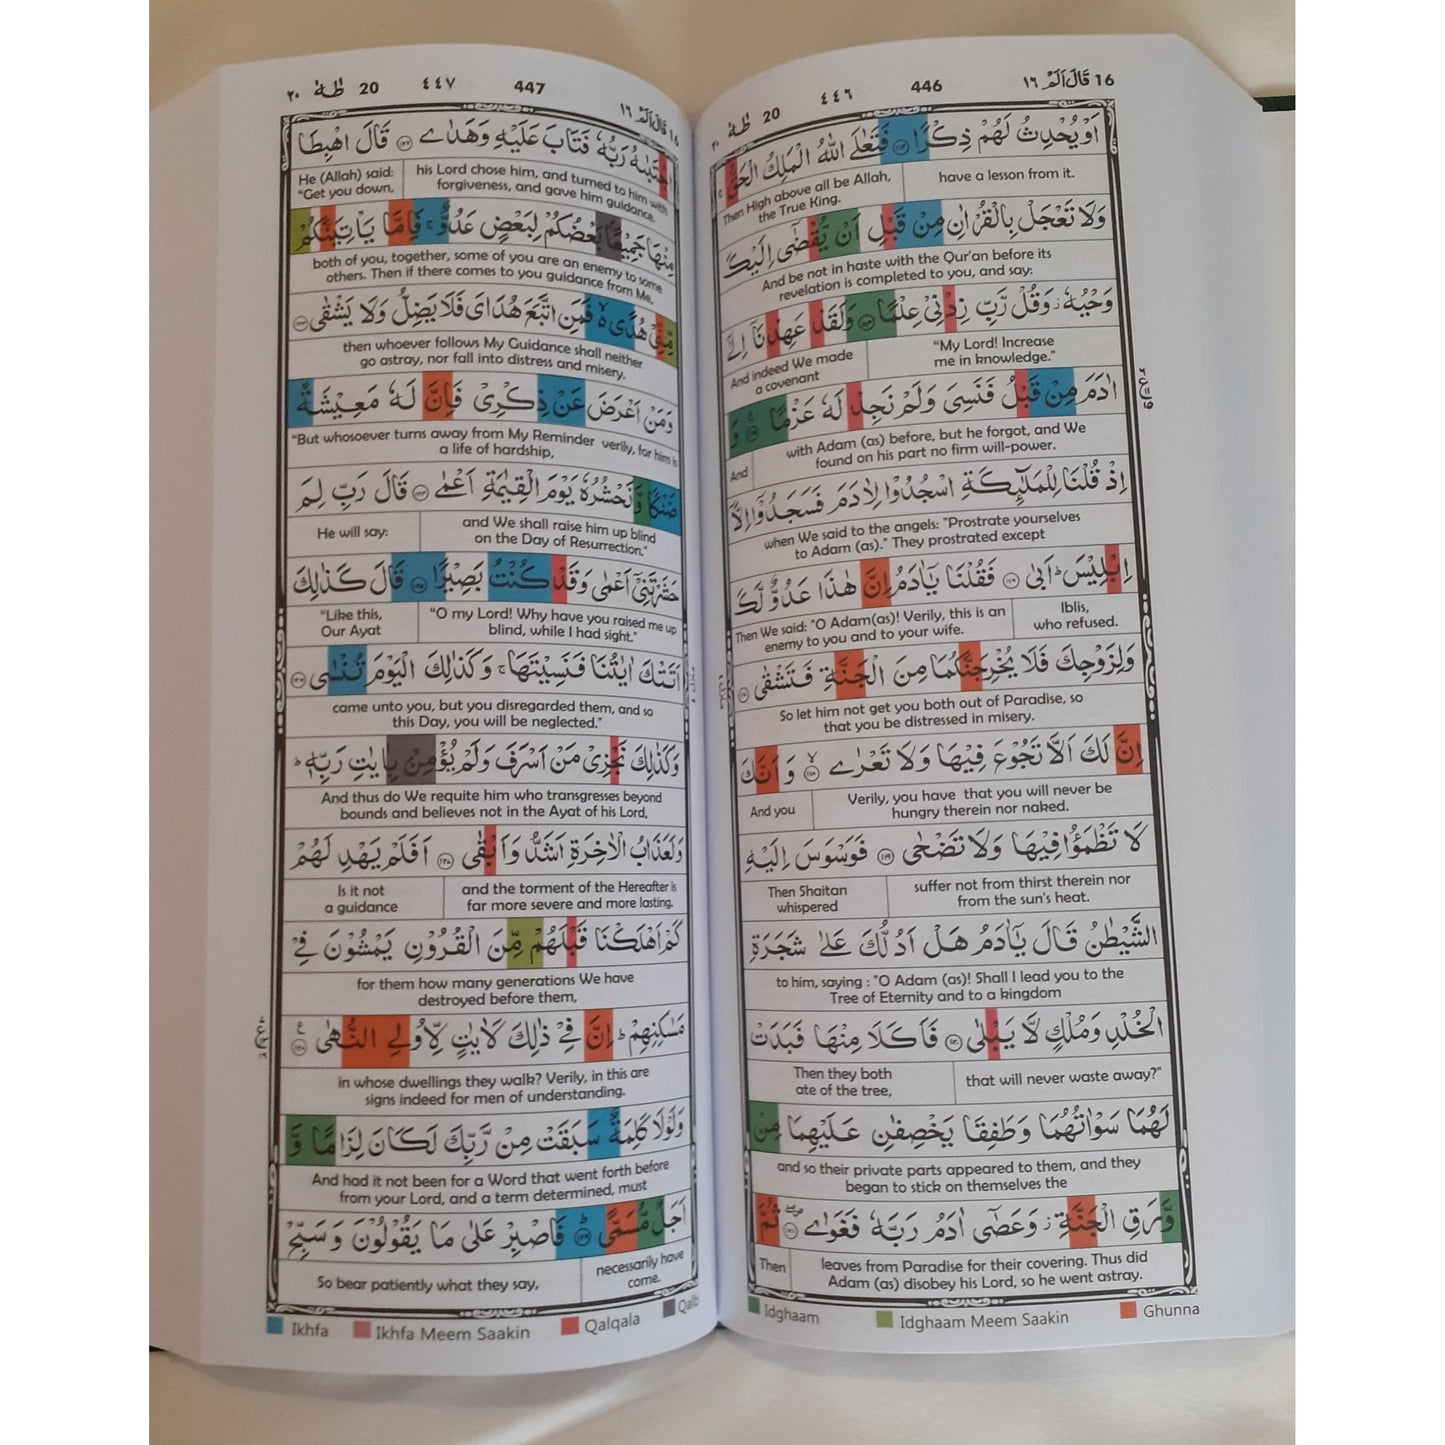 16 قَالَ اَلَمْ ١٦ 446 ٤٤٦ 20 طٰهٰ ٢٠
اَوْ يُحْدِثُ لَهُمْ ذِكْرًا ﴿١١٣﴾ فَتَعٰلَى اللّٰهُ الْمَلِكُ الْحَقُّ ۚ
have a lesson from it. Then High above all be Allah, the True King.
وَلَا تَعْجَلْ بِالْقُرْاٰنِ مِنْ قَبْلِ اَنْ يُّقْضٰٓى اِلَيْكَ
And be not in haste with the Qur'an before its
revelation is completed to you, and say:
وَحْيُهٗ ۫ وَقُلْ رَّبِّ زِدْنِيْ عِلْمًا ﴿١١٤﴾ وَلَقَدْ عَهِدْنَآ اِلٰٓى
"My Lord! Increase me in knowledge." And indeed We made a covenant
اٰدَمَ مِنْ قَبْلُ فَنَسِيَ وَلَمْ نَجِدْ لَهٗ عَزْمًا ﴿١١٥﴾ وَ
with Adam (as) before, but he forgot, and We
found on his part no firm will-power. And
اِذْ قُلْنَا لِلْمَلٰٓئِكَةِ اسْجُدُوْا لِاٰدَمَ فَسَجَدُوْٓا اِلَّآ
when We said to the angels: "Prostrate yourselves
to Adam (as)." They prostrated except
اِبْلِيْسَ ؕ اَبٰى ﴿١١٦﴾ فَقُلْنَا يٰٓاٰدَمُ اِنَّ هٰذَا عَدُوٌّ لَّكَ
Iblis, who refused. Then We said: "O Adam(as)! Verily, this is an enemy to you and to your wife.
وَلِزَوْجِكَ فَلَا يُخْرِجَنَّكُمَا مِنَ الْجَنَّةِ فَتَشْقٰى ﴿١١٧﴾
So let him not get you both out of Paradise, so
that you be distressed in misery.
اِنَّ لَكَ اَلَّا تَجُوْعَ فِيْهَا وَلَا تَعْرٰى ﴿١١٨﴾ وَ اَنَّكَ
Verily, you have that you will never be
hungry therein nor naked. And you
لَا تَظْمَؤُا فِيْهَا وَلَا تَضْحٰى ﴿١١٩﴾ فَوَسْوَسَ اِلَيْهِ
suffer not from thirst therein nor from the sun's heat. Then Shaitan whispered
الشَّيْطٰنُ قَالَ يٰٓاٰدَمُ هَلْ اَدُلُّكَ عَلٰى شَجَرَةِ
to him, saying : "O Adam (as)! Shall I lead you to the
Tree of Eternity and to a kingdom
الْخُلْدِ وَمُلْكٍ لَّا يَبْلٰى ﴿١٢٠﴾ فَاَكَلَا مِنْهَا فَبَدَتْ
that will never waste away?" Then they both ate of the tree,
لَهُمَا سَوْاٰتُهُمَا وَطَفِقَا يَخْصِفٰنِ عَلَيْهِمَا مِنْ
and so their private parts appeared to them, and they
began to stick on themselves the
وَّرَقِ الْجَنَّةِ ۫ وَعَصٰٓى اٰدَمُ رَبَّهٗ فَغَوٰى ﴿١٢١﴾ ثُمَّ
leaves from Paradise for their covering. Thus did
Adam (as) disobey his Lord, so he went astray. Then
Idghaam Idghaam Meem Saakin Ghunna
16 قَالَ اَلَمْ ١٦ 447 ٤٤٧ 20 طٰهٰ ٢٠
اجْتَبٰهُ رَبُّهٗ فَتَابَ عَلَيْهِ وَهَدٰى ﴿١٢٢﴾ قَالَ اهْبِطَا
his Lord chose him, and turned to him with forgiveness, and gave him guidance. He (Allah) said: "Get you down,
مِنْهَا جَمِيْعًا بَعْضُكُمْ لِبَعْضٍ عَدُوٌّ ۚ فَاِمَّا يَاْتِيَنَّكُمْ
both of you, together, some of you are an enemy to some
others. Then if there comes to you guidance from Me,
مِّنِّيْ هُدًى ۙ۬ فَمَنِ اتَّبَعَ هُدَايَ فَلَا يَضِلُّ وَلَا يَشْقٰى ﴿١٢٣﴾
then whoever follows My Guidance shall neither
go astray, nor fall into distress and misery.
وَمَنْ اَعْرَضَ عَنْ ذِكْرِيْ فَاِنَّ لَهٗ مَعِيْشَةً
"But whosoever turns away from My Reminder verily, for him is
a life of hardship,
ضَنْكًا وَّنَحْشُرُهٗ يَوْمَ الْقِيٰمَةِ اَعْمٰى ﴿١٢٤﴾ قَالَ رَبِّ لِمَ
and We shall raise him up blind on the Day of Resurrection." He will say:
حَشَرْتَنِيْٓ اَعْمٰى وَقَدْ كُنْتُ بَصِيْرًا ﴿١٢٥﴾ قَالَ كَذٰلِكَ
"O my Lord! Why have you raised me up blind, while I had sight." "Like this, Our Ayat
اَتَتْكَ اٰيٰتُنَا فَنَسِيْتَهَا ۚ وَكَذٰلِكَ الْيَوْمَ تُنْسٰى ﴿١٢٦﴾
came unto you, but you disregarded them, and so
this Day, you will be neglected."
وَكَذٰلِكَ نَجْزِيْ مَنْ اَسْرَفَ وَلَمْ يُؤْمِنْۢ بِاٰيٰتِ رَبِّهٖ ؕ
And thus do We requite him who transgresses beyond
bounds and believes not in the Ayat of his Lord,
وَلَعَذَابُ الْاٰخِرَةِ اَشَدُّ وَاَبْقٰى ﴿١٢٧﴾ اَفَلَمْ يَهْدِ لَهُمْ
and the torment of the Hereafter is far more severe and more lasting. Is it not a guidance
كَمْ اَهْلَكْنَا قَبْلَهُمْ مِّنَ الْقُرُوْنِ يَمْشُوْنَ فِيْ
for them how many generations We have
destroyed before them,
مَسٰكِنِهِمْ ؕ اِنَّ فِيْ ذٰلِكَ لَاٰيٰتٍ لِّاُولِي النُّهٰى ﴿١٢٨﴾
in whose dwellings they walk? Verily, in this are
signs indeed for men of understanding.
وَلَوْلَا كَلِمَةٌ سَبَقَتْ مِنْ رَّبِّكَ لَكَانَ لِزَامًا وَّ
And had it not been for a Word that went forth before
from your Lord, and a term determined, must
اَجَلٌ مُّسَمًّى ﴿١٢٩﴾ فَاصْبِرْ عَلٰى مَا يَقُوْلُوْنَ وَسَبِّحْ
necessarily have come. So bear patiently what they say,
Ikhfa Ikhfa Meem Saakin Qalqala Qalb